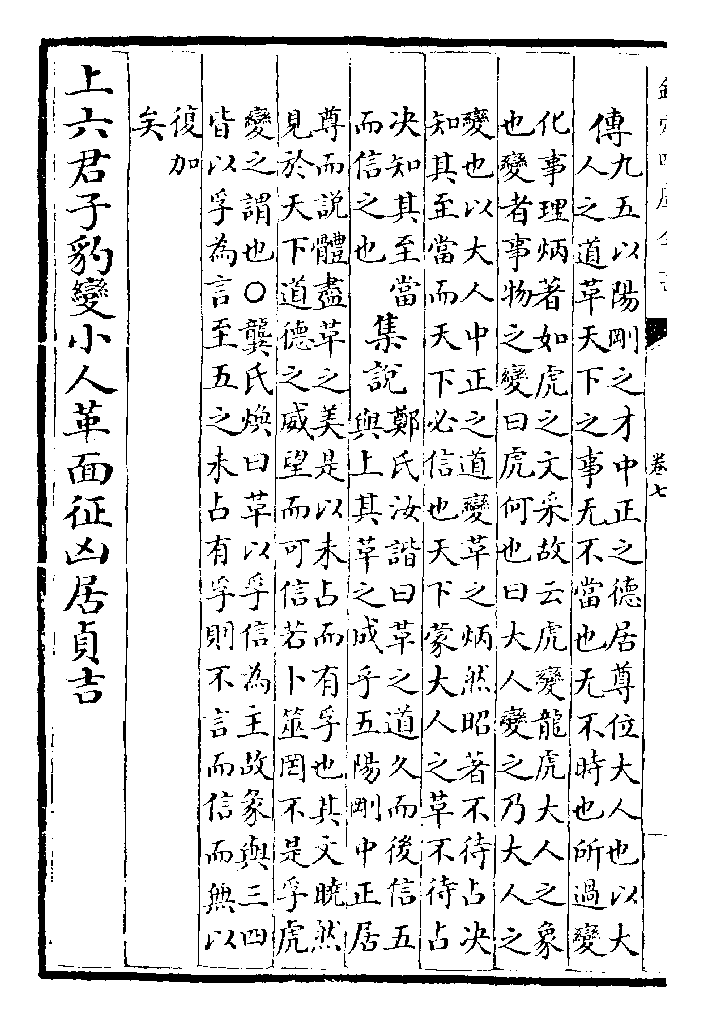 卷七
傳九五以陽剛之才中正之德居尊位大人也以大
人之道革天下之事无不當也无不時也所過變
化事理炳著如虎之文采故云虎變龍虎大人之象
也變者事物之變曰虎何也曰大人變之乃大人之
變也以大人中正之道變革之炳然昭著不待占决
知其至當而天下必信也天下蒙大人之革不待占
决知其至當
而信之也
集說鄭氏汝諧曰革之道久而後信五
與上其革之成乎五陽剛中正居
尊而說體盡革之美是以未占而有孚也其文曉然
見於天下道德之威望而可信若卜筮罔不是孚虎
變之謂也○龔氏煥曰革以孚信為主故彖與三四
皆以孚為言至五之未占有孚則不言而信而無以
復加
矣
上六君子豹變小人革面征凶居貞吉